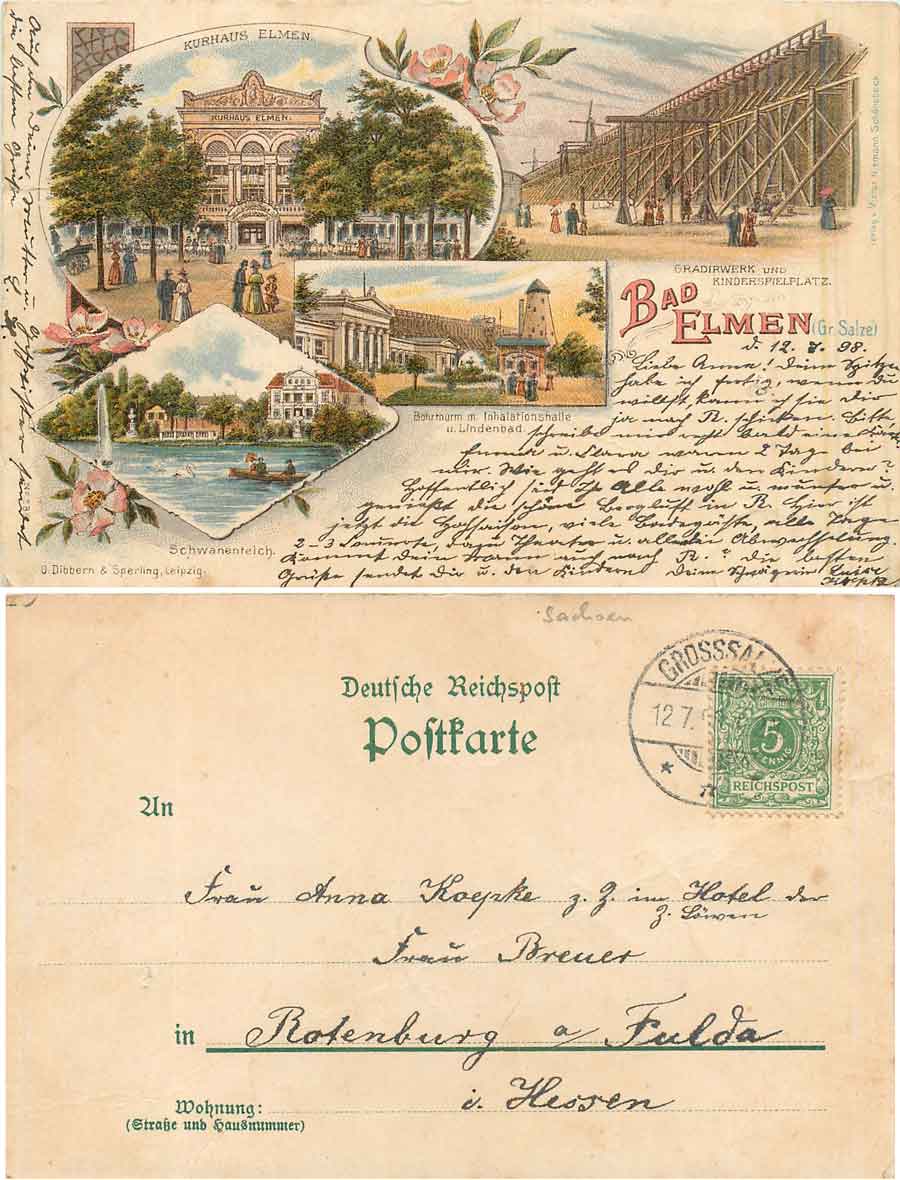 KURHAUS ELMEN.
KURHAUS ELMEN.
GRADIRWERK UND
KINDERSPIELPLATZ.
BAD
ELMEN (Gr. Salze)
Bohrthurm m. Inhalationshalle
u. Lindenbad.
Schwanenteich.
O. Dibbern & Sperling, Leipzig.
d. 12. 7. 98.
Liebe Anna! Deine Spitze
habe ich fertig, wenn Du
willst kann ich sie Dir
ja nach R. schicken. Bitte
schreibe mir recht bald eine
Emma u. Clara waren 2 Tage bei
mir. Wie geht es dir u. den Kindern?
Hoffentlich seid Ihr Alle wohl u. munter u.
genießt die schöne Bergluft in R. Hier ist
jetzt die Hochsaison, viele Badegäste, alle Tage
2-3 Concerte, dazu Theater u. allerlei Abwechselung.
Kommt Dein Mann auch nach R.? Die besten
Grüße sendet Dir u. den Kindern Deine Schwägerin
Auch von Deiner Mutter u. Geschwister sendet
die besten Grüße
Sachsen
Deutsche Reichspost
Postkarte
GROSSSAL
12 7.
5
PFENNIG
REICHSPOST
An
Frau Anna Koepke z. Z. im Hotel der
z. Löwen
Frau Breuer
in Rotenburg a/ Fulda
i. Hessen
Wohnung:
(Straße und Hausnummer)